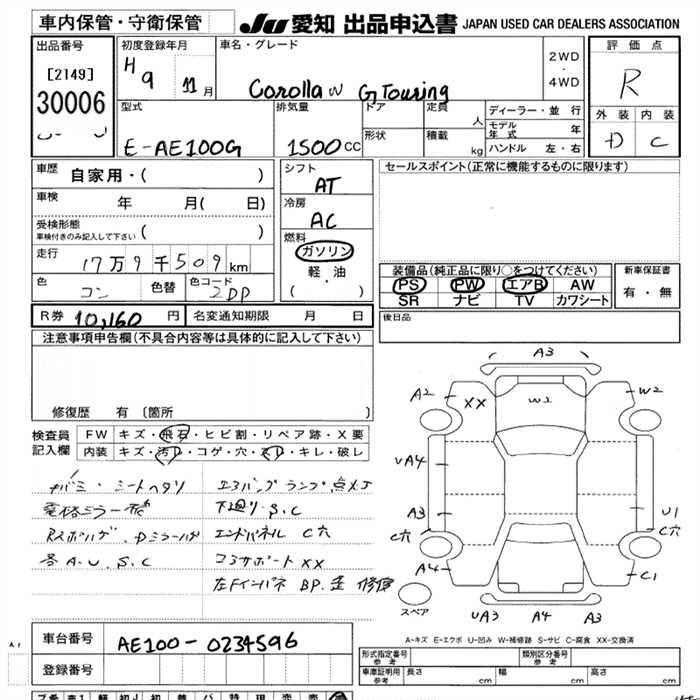 車内保管・守衛保管
JU 愛知 出品申込書 JAPAN USED CAR DEALERS ASSOCIATION
出品番号
[2149]
30006
初度登録年月
H 9 11月
車名・グレード
Corolla W G Touring
2WD
・
4WD
評価点
R
外装 内装
D C
型式
E-AE100G
排気量
1500cc
ドア
形状
定員 人
積載 kg
ディーラー・並行
モデル年式 年
ハンドル 左・右
車歴
自家用・( )
車検 年 月( 日)
受検形態
車検付きのみ記入して下さい ( )
走行
17万9千509km
色
コン
色替
色コード
2DP
シフト
AT
冷房
AC
燃料
ガソリン
軽・油
( )
R券 10,160円
名変通知期限 月 日
セールスポイント(正常に機能するものに限ります)
装備品(純正品に限り○をつけてください)
PS PW エアB AW
SR ナビ TV カワシート
新車保証書
有・無
後日品
注意事項申告欄(不具合内容等は具体的に記入して下さい)
修復歴 有 [箇所 ]
検査員記入欄
FW キズ・飛石・ヒビ割・リペア跡・X要
内装 キズ・汚レ・コゲ・穴・スレ・キレ・破レ
シートヘタリ
エアバッグランプ点メツ
電格ミラー
下廻り・S.C
エンドパネル C穴
各A.U.S.C
コアサポートXX
左Fインパネ BP.歪 修復
A3
A2
XX
W2
W2
UA4
A3
C穴
A4
U1
C穴
C1
スペア
UA3
A4
A3
A-キズ E-エクボ U-凹み W-補修跡 S-サビ C-腐食 XX-交換済
車台番号 AE100-0234596
登録番号
形式指定番号 参考
類別区分番号 参考
車庫証明用 参考 長さ cm 幅 cm 高さ cm